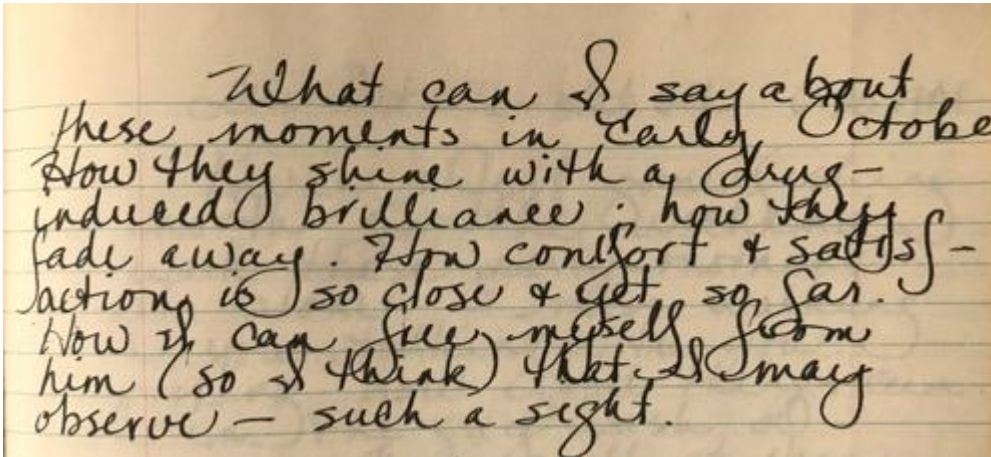 What can I say about
these moments in early Octobe
How they shine with a drug-
induced brilliance; how they
fade away. How comfort & satisf-
action is so close & yet so far.
Now I can free myself from
him (so I think) that I may
observe — such a sight.